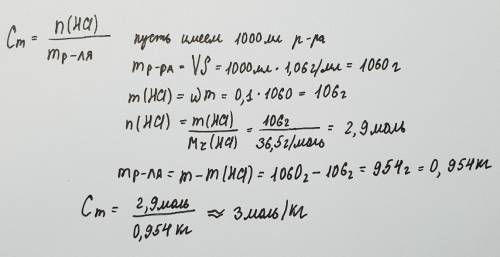 Cm = n(HCl) / mр-ля пусть имеем 1000 мл р-ра
mр-ра = Vρ = 1000мл · 1,06г/мл = 1060 г
m(HCl) = ωm = 0,1 · 1060 = 106г
n(HCl) = m(HCl) / Mr(HCl) = 106г / 36,5г/моль = 2,9моль
mр-ля = m - m(HCl) = 1060г - 106г = 954г = 0,954кг
Cm = 2,9моль / 0,954кг ≈ 3моль/кг